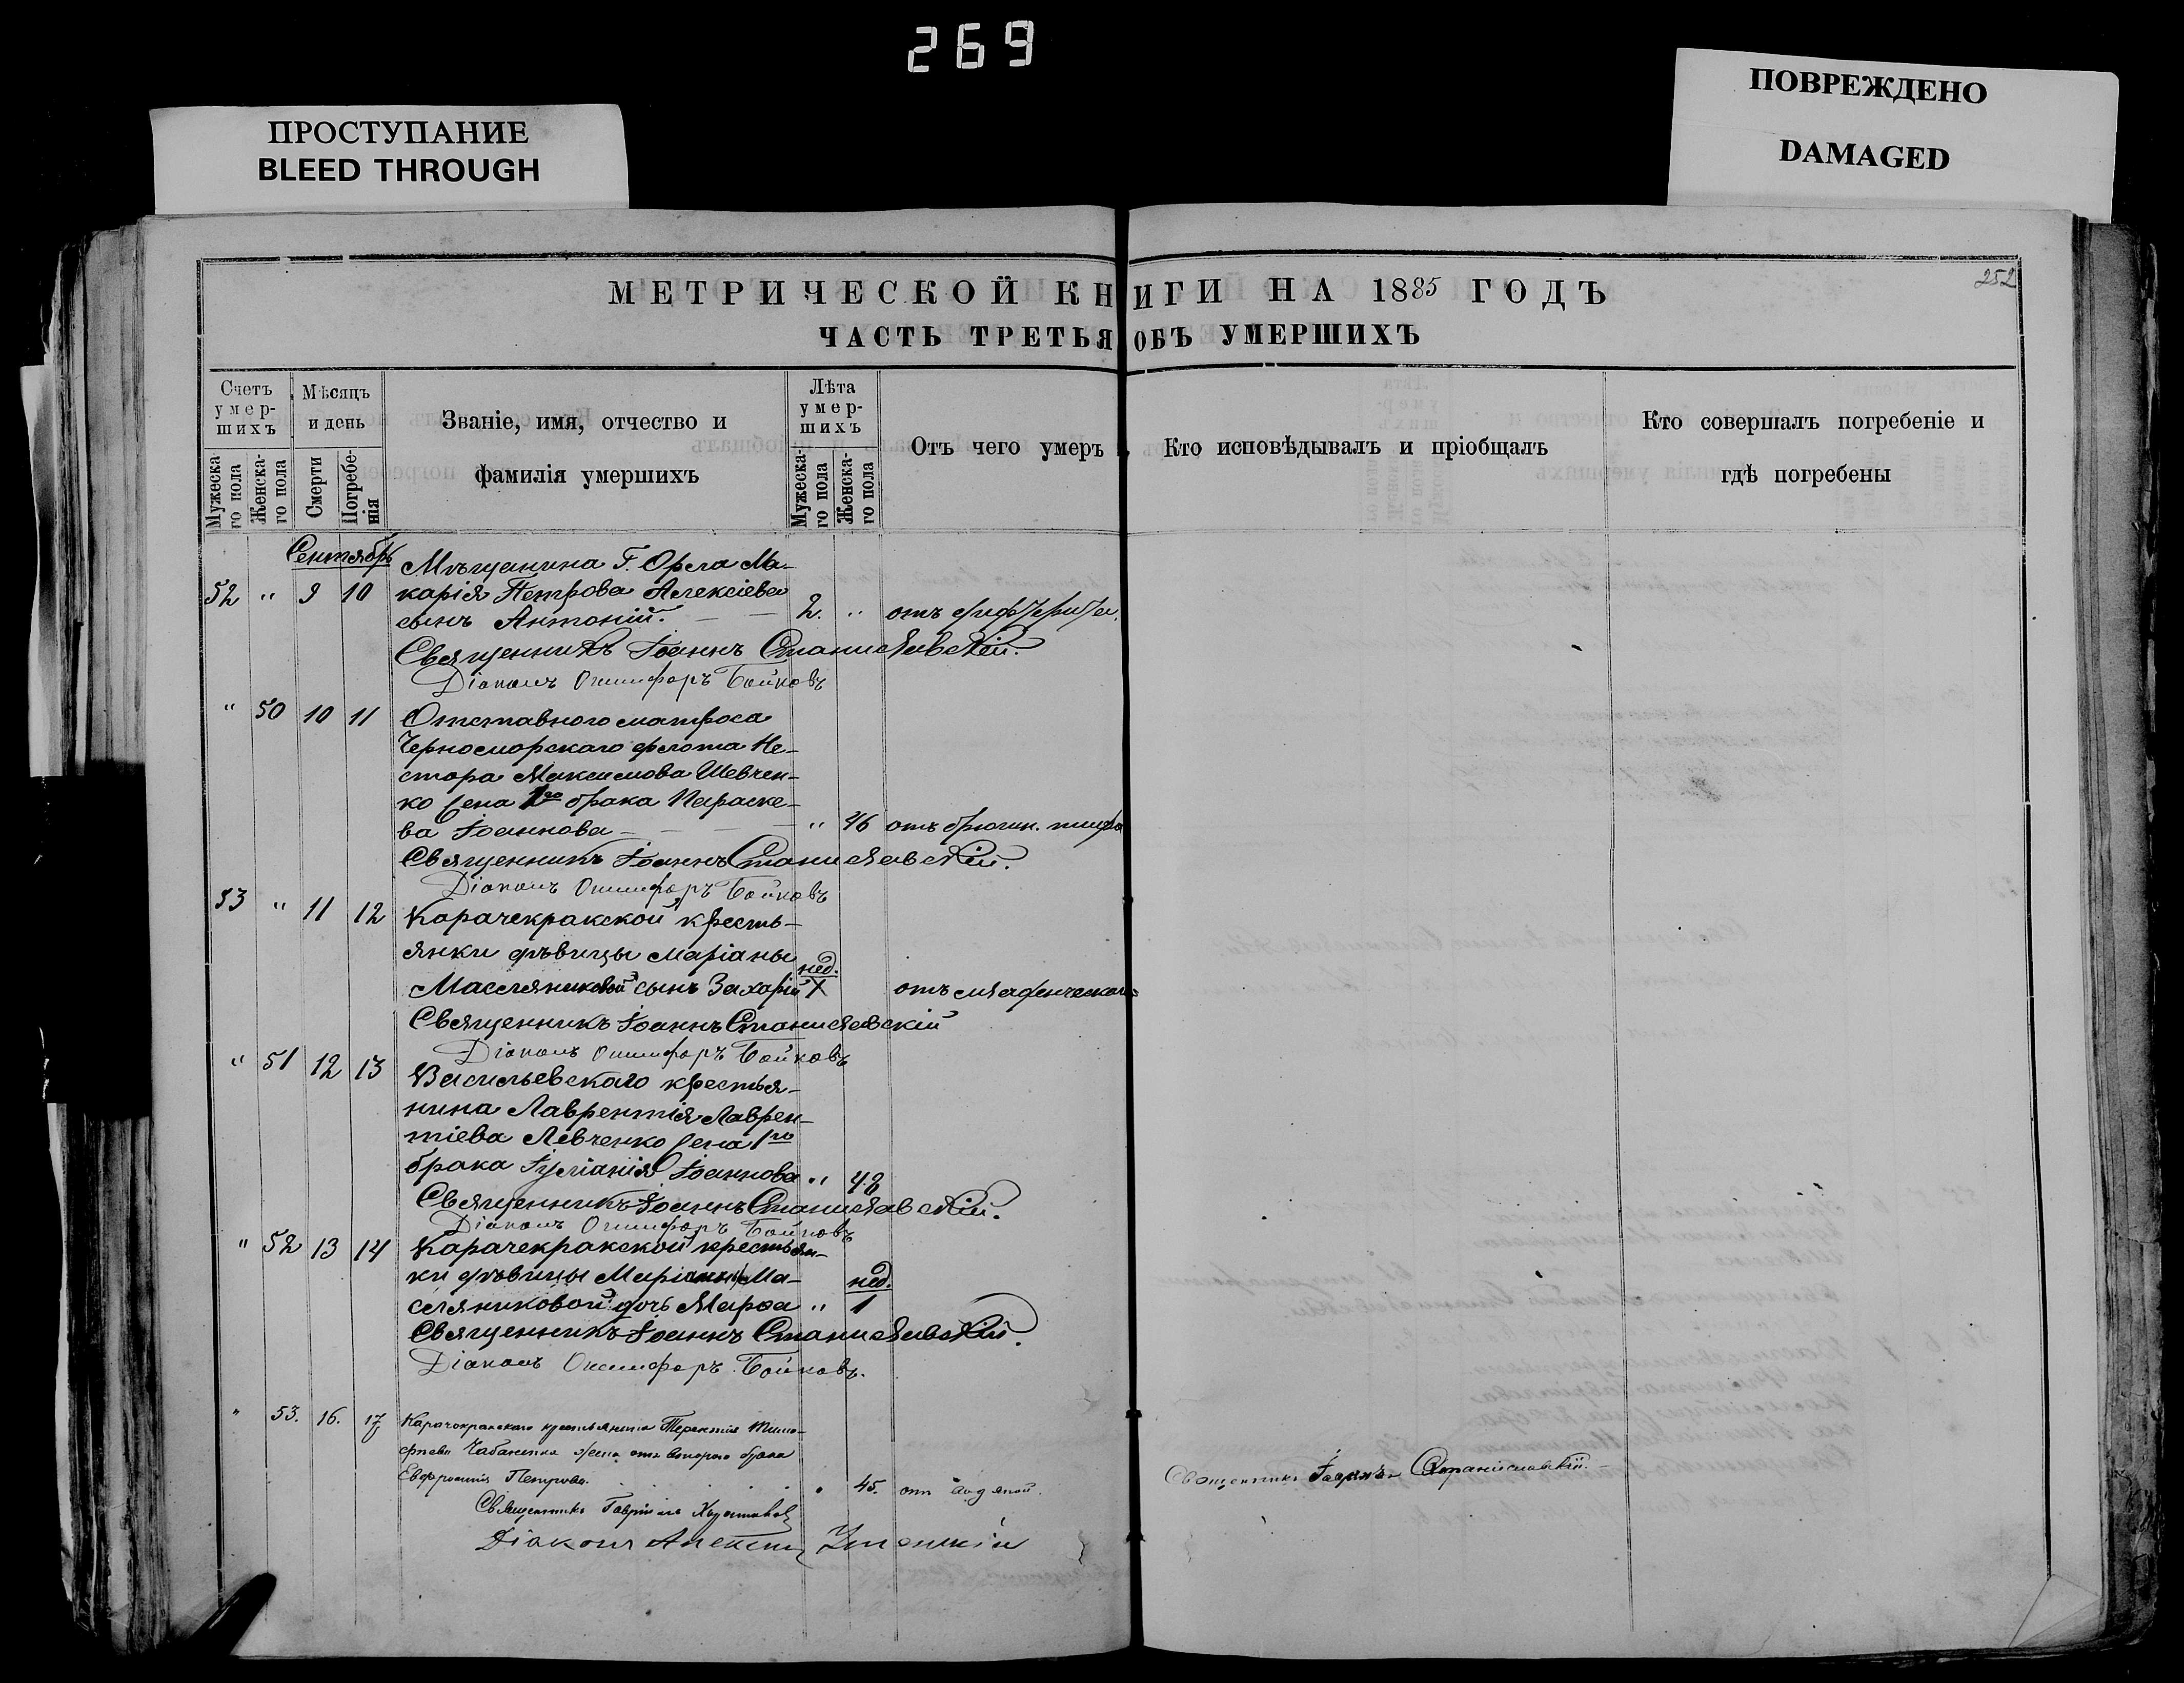 269
ПРОСТУПАНИЕ
BLEED THROUGH
ПОВРЕЖДЕНО
DAMAGED
252
МЕТРИЧЕСКОЙ КНИГИ НА 1885 ГОДЪ
ЧАСТЬ ТРЕТЬЯ ОБЪ УМЕРШИХЪ
Счетъ умер-шихъ
Мужеска-го пола
Женска-го пола
Мѣсяцъ и день
Смерти
Погребе-нія
Званіе, имя, отчество и
фамилія умершихъ
Лѣта умер-шихъ
Мужеска-го пола
Женска-го пола
Отъ чего умеръ
Кто исповѣдывалъ и пріобщалъ
Кто совершалъ погребеніе и
гдѣ погребены
Сентябрь
Мѣщанина Г. Орла Ма-
52 " 9 10 карія Петрова Алексіева
сынъ Антоній. 2. " отъ дифтерита.
Священникъ Іоаннъ Станиславскій.
Діаконъ Онисифоръ Бойковъ
" 50 10 11 Отставного матроса
Черноморскаго флота Не-
стора Максимова Шевчен-
ко жена 1го брака Параске-
ва Іоаннова " 46 отъ брюшн. тифа
Священникъ Іоаннъ Станиславскій.
Діаконъ Онисифоръ Бойковъ
53 " 11 12 Карачекракской кресть-
янки дѣвицы Маріаны
нед.
Масляниковой сынъ Захарій X отъ младенческой
Священникъ Іоаннъ Станиславскій
Діаконъ Онисифоръ Бойковъ
" 51 12 13 Васильевскаго крестья-
нина Лаврентія Лаврен-
тіева Левченко жена 1го
брака Іуліанія Іоаннова " 48
Священникъ Іоаннъ Станиславскій.
Діаконъ Онисифоръ Бойковъ
" 52 13 14 Карачекракской крестьян-
ки дѣвицы Маріаны Ма- нед.
сляниковой дочь Марѳа " 1
Священникъ Іоаннъ Станиславскій.
Діаконъ Онисифоръ Бойковъ.
" 53. 16. 17 Карачокракскаго крестьянина Терентія Тимо-
фѣева Чабаненка жена отъ второго брака
Евфросинія Петрова. 45. отъ водяной.
Священникъ Іоаннъ Станиславскій.
Священникъ Гавріилъ
Діаконъ Алексій